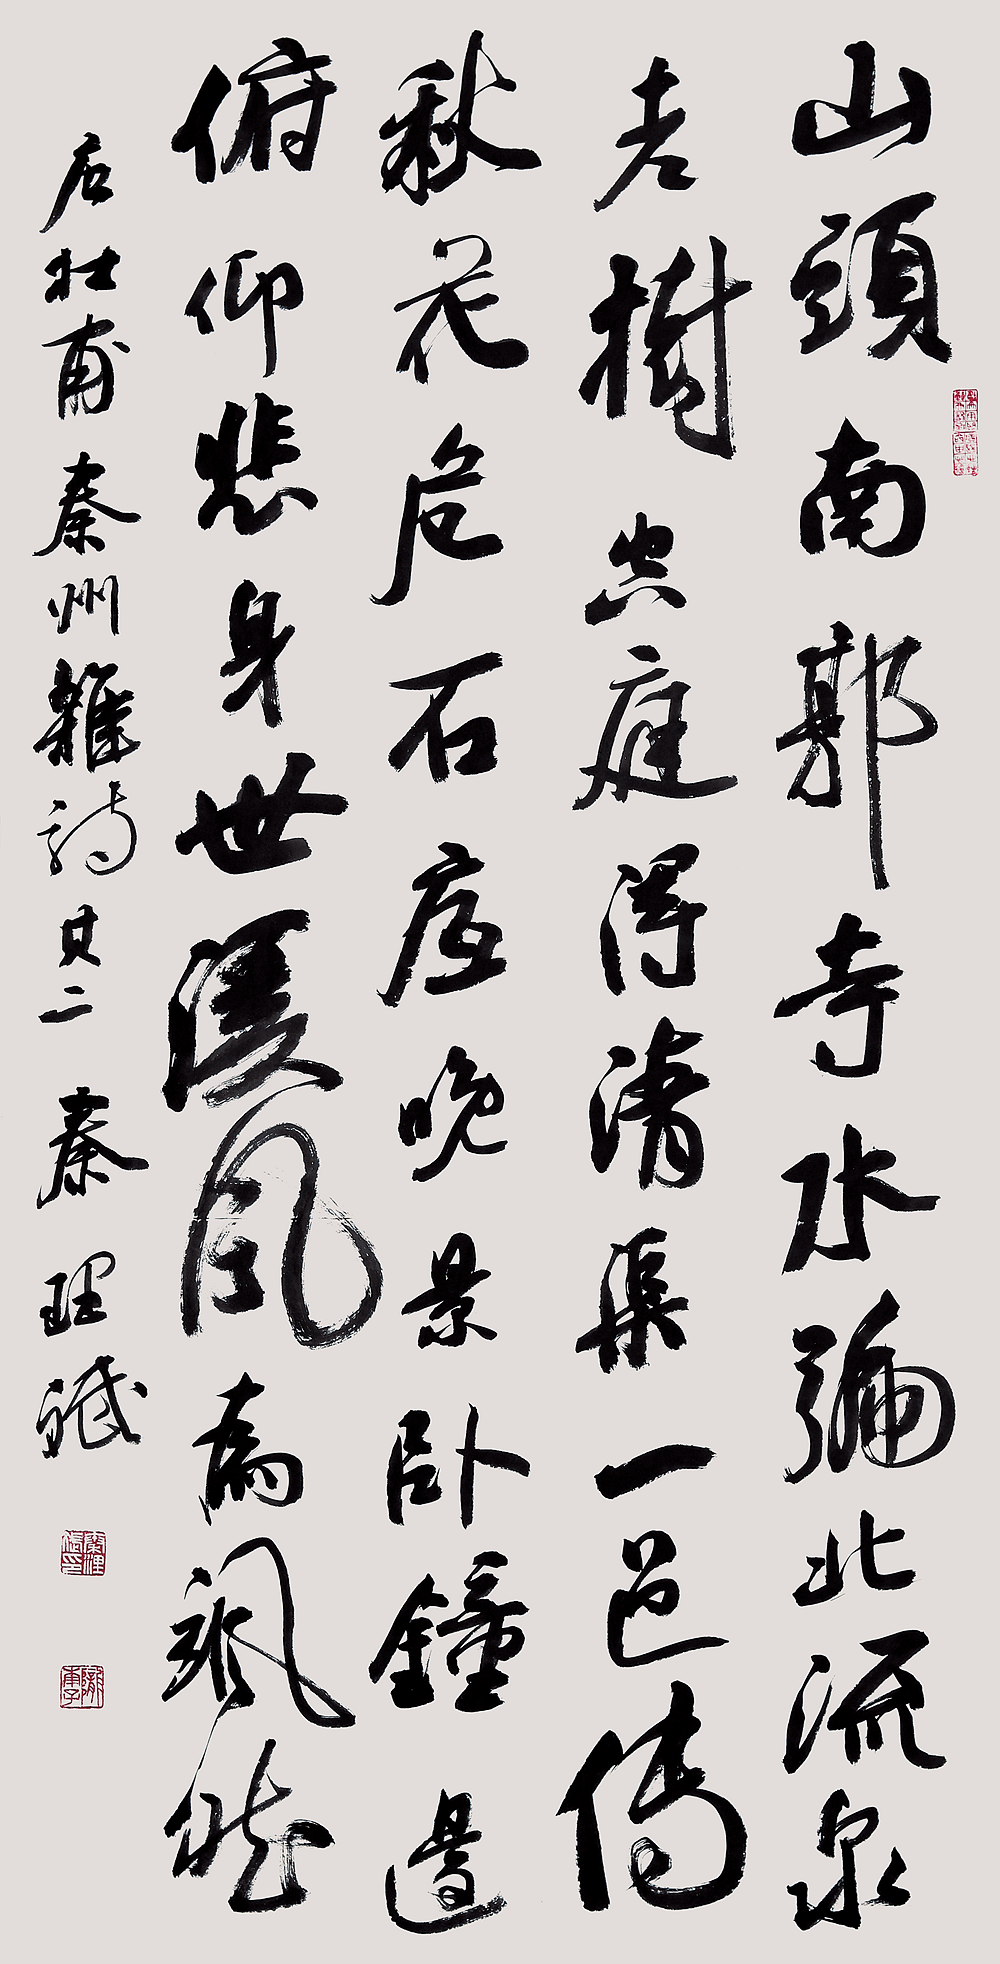 山頭南郭寺水彌北流泉
老樹空庭得清渠一邑傳
秋花危石底晚景臥鐘邊
俯仰悲身世溪風為颯然
右杜甫秦州雜詩其二 秦理斌